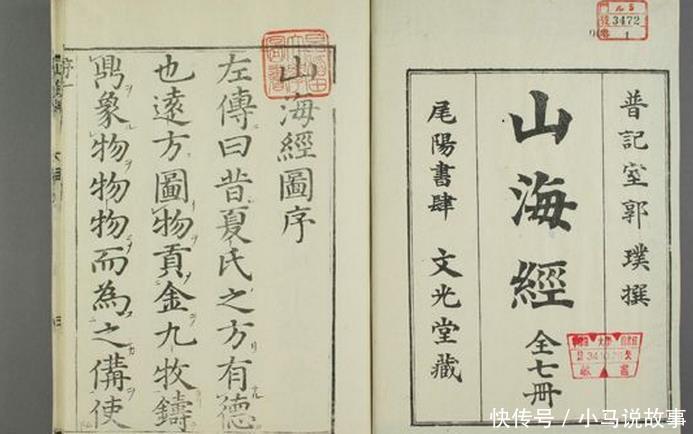 普記室郭璞撰
山海經
全七冊
尾陽書肆 文光堂藏
3472
1
山海經圖序
左傳曰昔夏氏之方有德
也遠方圖物貢金九牧鑄
鼎象物物物而為之備使
序一
快传号 / 小马说故事